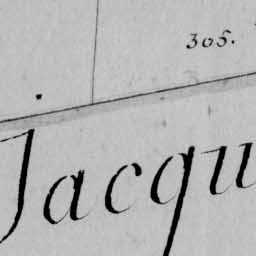 305.
Jacqu